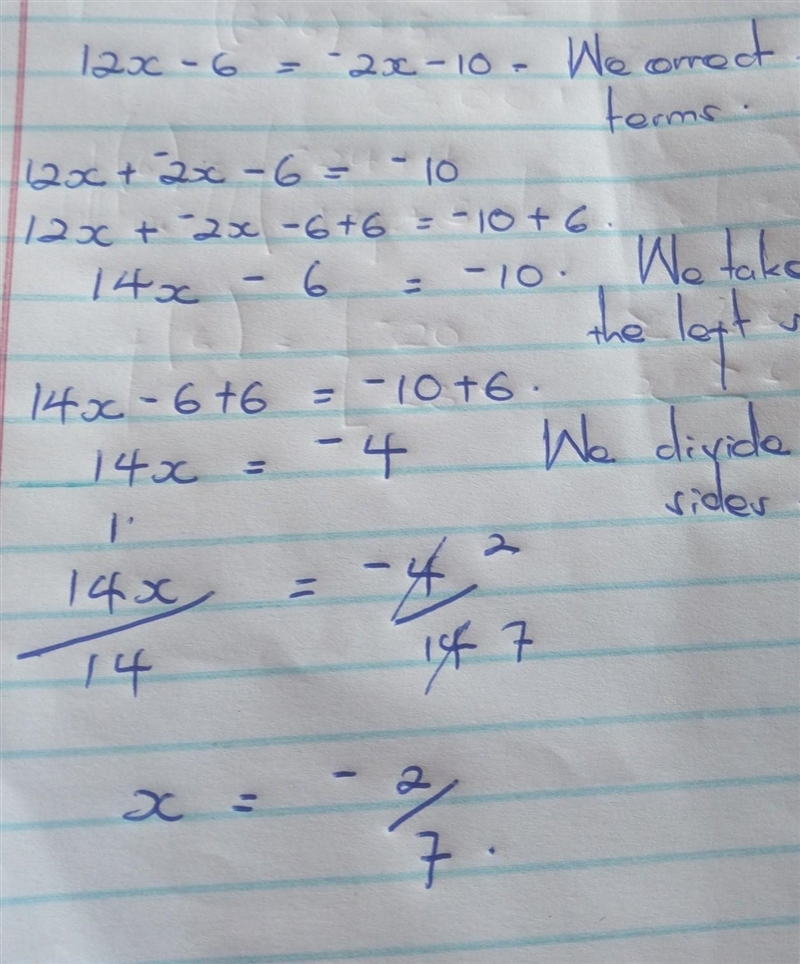 12x - 6 = ⁻2x - 10 - We correct
terms.
12x + ⁻2x - 6 = ⁻10
12x + ⁻2x - 6 + 6 = ⁻10 + 6.
14x - 6 = ⁻10. We take
the left s
14x - 6 + 6 = ⁻10 + 6.
14x = ⁻4 We divide
sides
1
14x = ⁻4 2
14 14 7
x = ⁻2/
7.